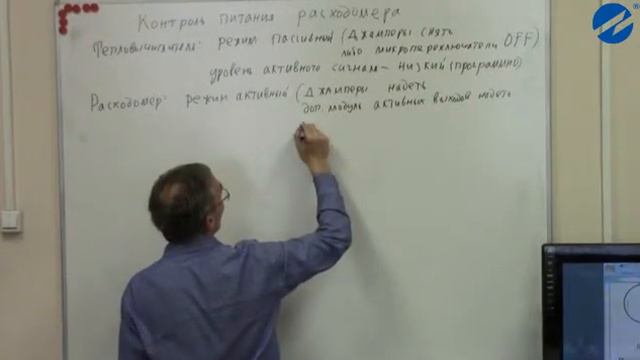 Контроль питания расходомера
Тепловычислитель: режим пассивный (Джамперы снять
либо микропереключатели OFF)
уровень активного сигнала - низкий (программно)
Расходомер: режим активный (Джамперы надеть
доп. модуль активных выходов надеть